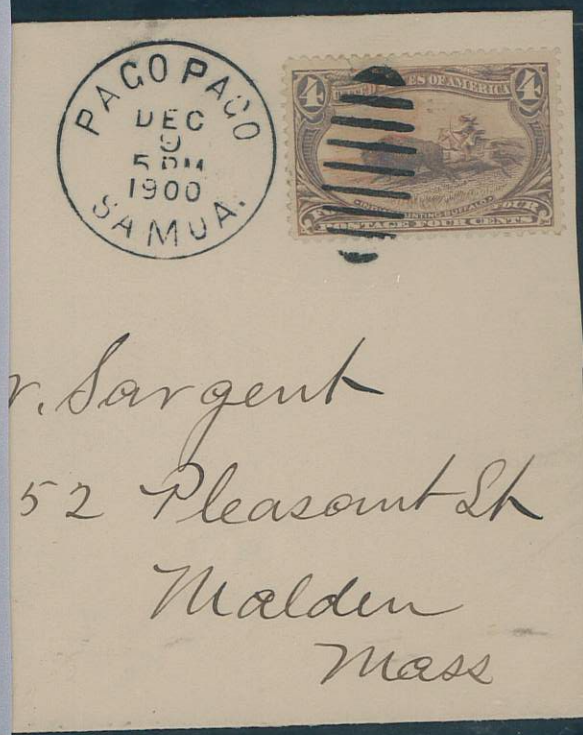 PAGO PAGO
DEC
9
5 PM
1900
SAMOA.
4 STATES OF AMERICA 4
INDIAN HUNTING BUFFALO.
FOUR
POSTAGE FOUR CENTS
r. Sargent
52 Pleasant St
Malden
Mass